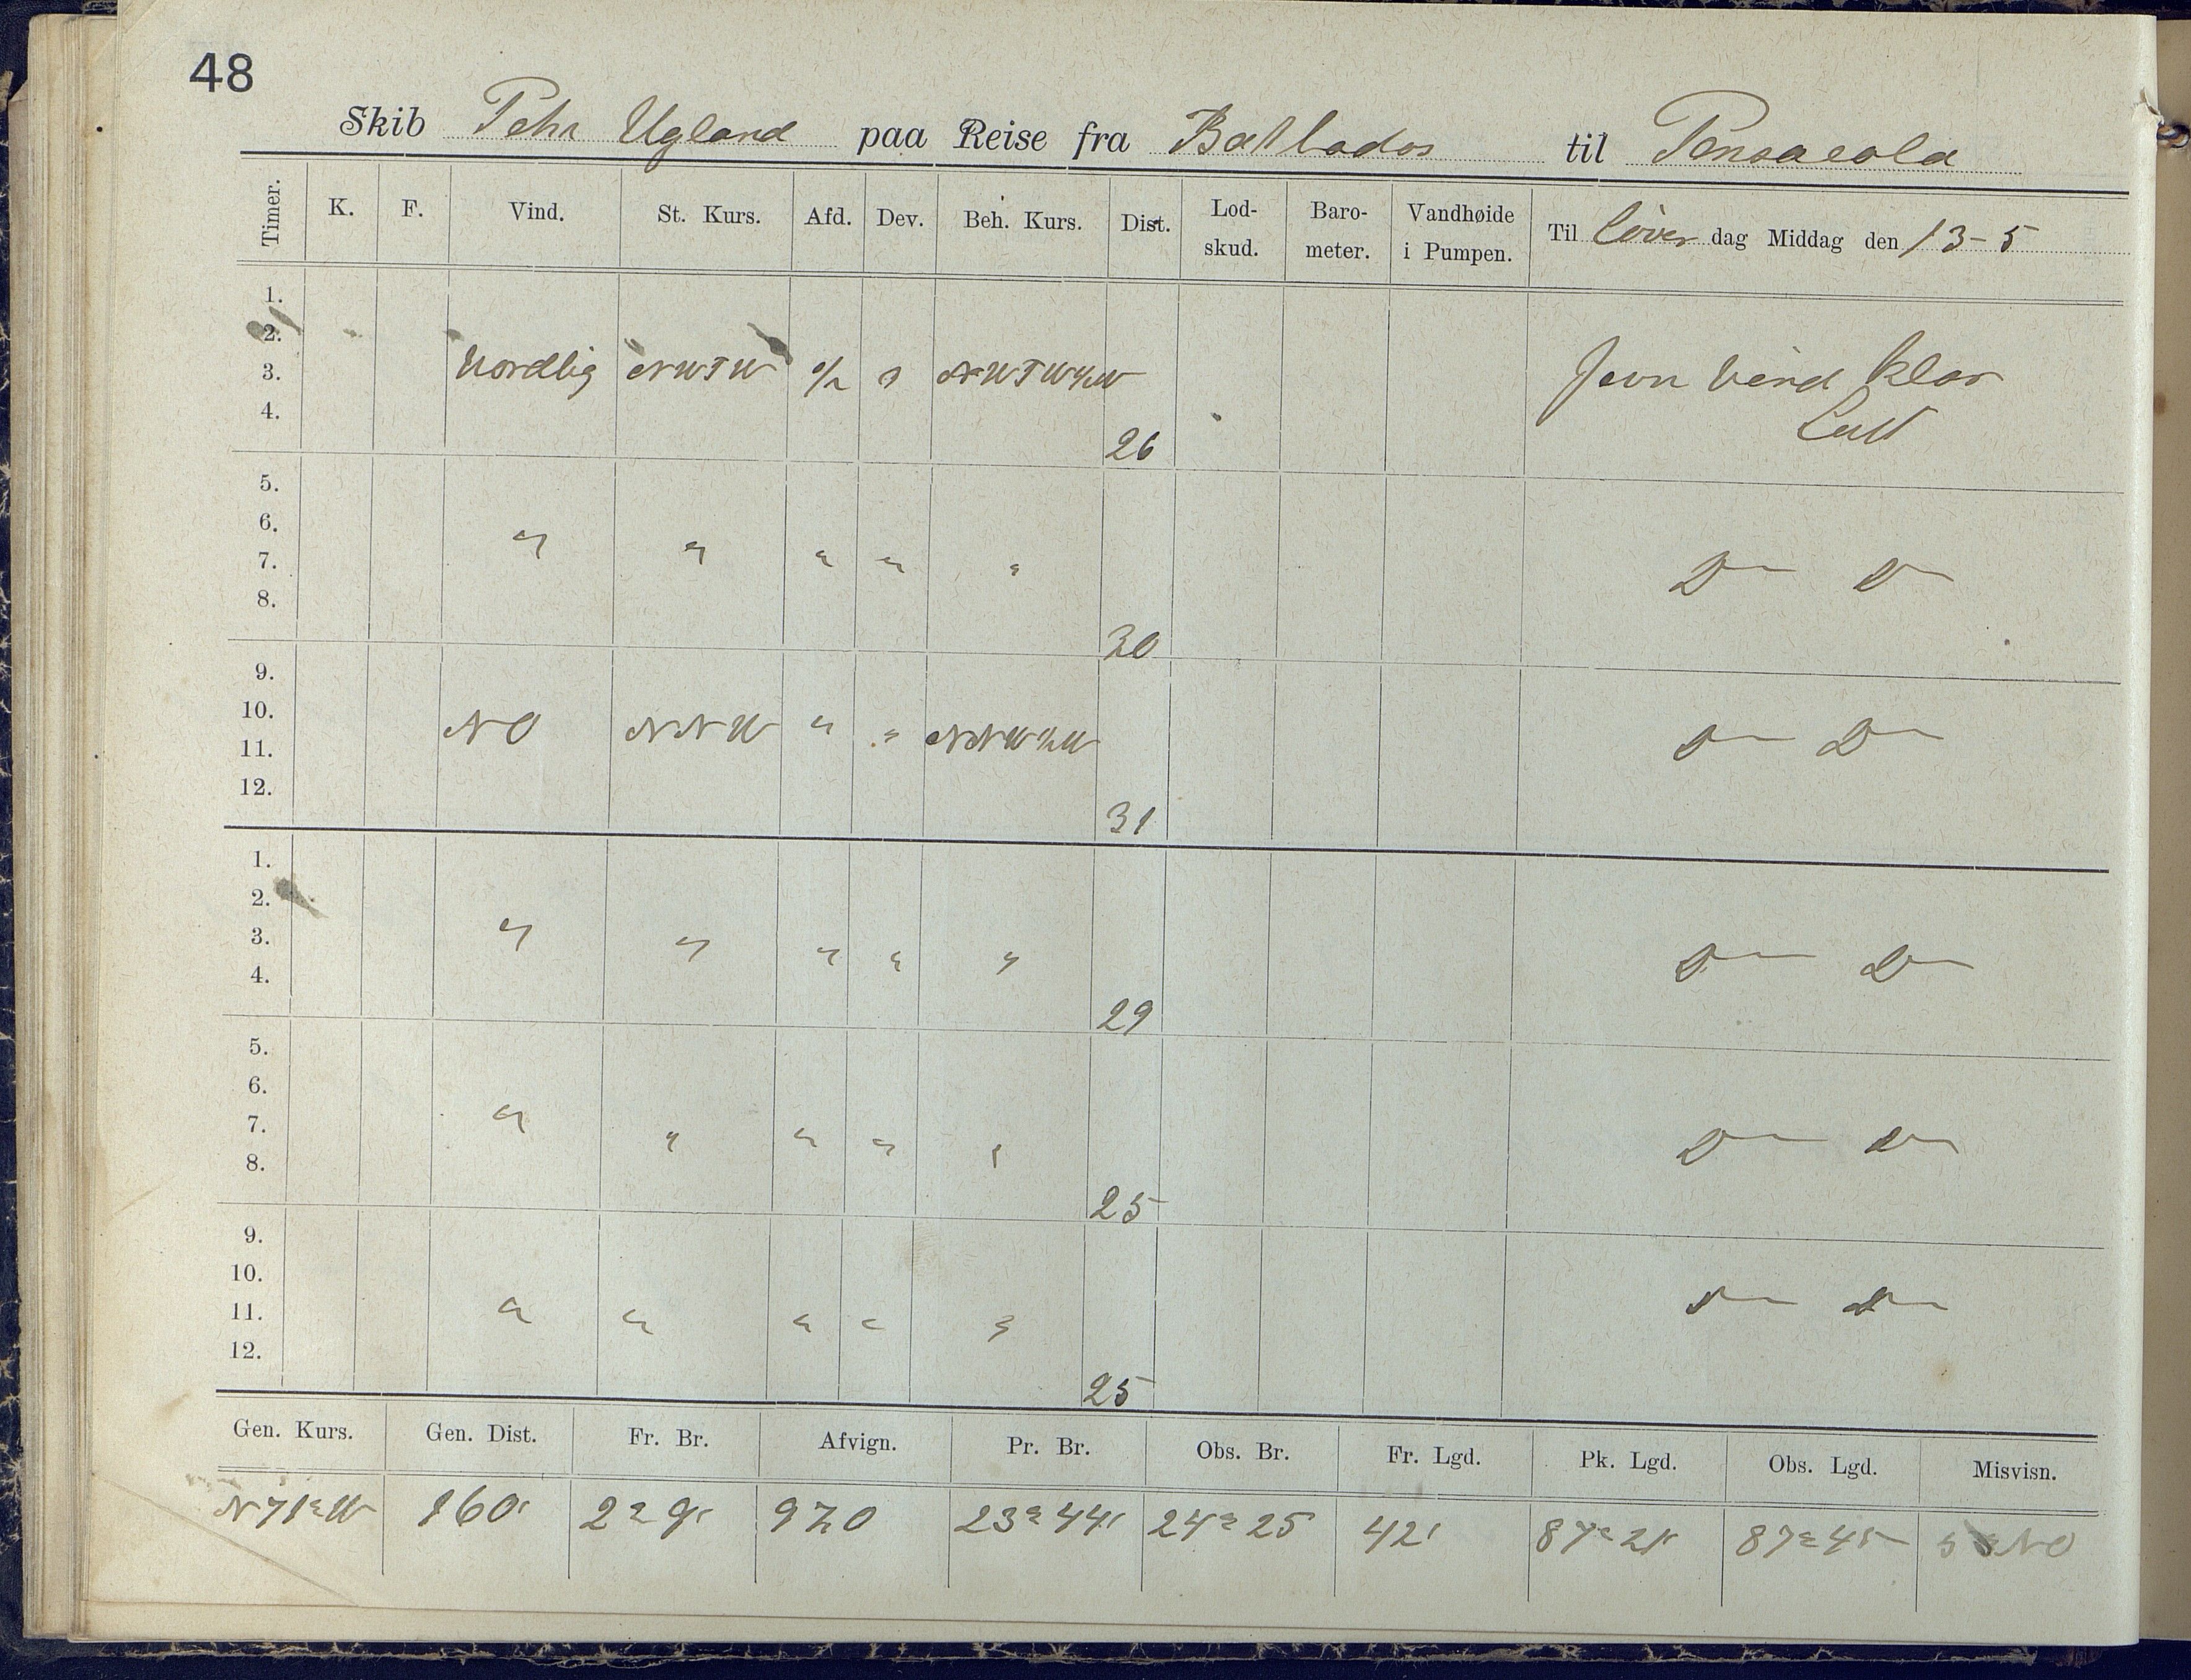 48
Skib Pehr Ugland paa Reise fra Barbados til Pensacola
Timer. K. F. Vind. St. Kurs. Afd. Dev. Beh. Kurs. Dist. Lod-skud. Baro-meter. Vandhøide i Pumpen. Til Löver dag Middag den 13-5
1.
2.
3. Nordlig NWTW 1/2 NWTW1/2W Jevn Vind klar
4. Luft
26
5.
6.
7. " " " " " D— D—
8.
30
9.
10. NO NNW " " NNW1/2W D— D—
11.
12.
31
1.
2.
3. " " " " " D— D—
4.
29
5.
6.
7. " " " " " D— D—
8.
25
9.
10.
11. " " " " " D— D—
12.
25
Gen. Kurs. Gen. Dist. Fr. Br. Afvign. Pr. Br. Obs. Br. Fr. Lgd. Pk. Lgd. Obs. Lgd. Misvisn.
N 71° W 160' 2° 9' 23° 44' 24° 25 42' 87° 21' 87° 45 NO